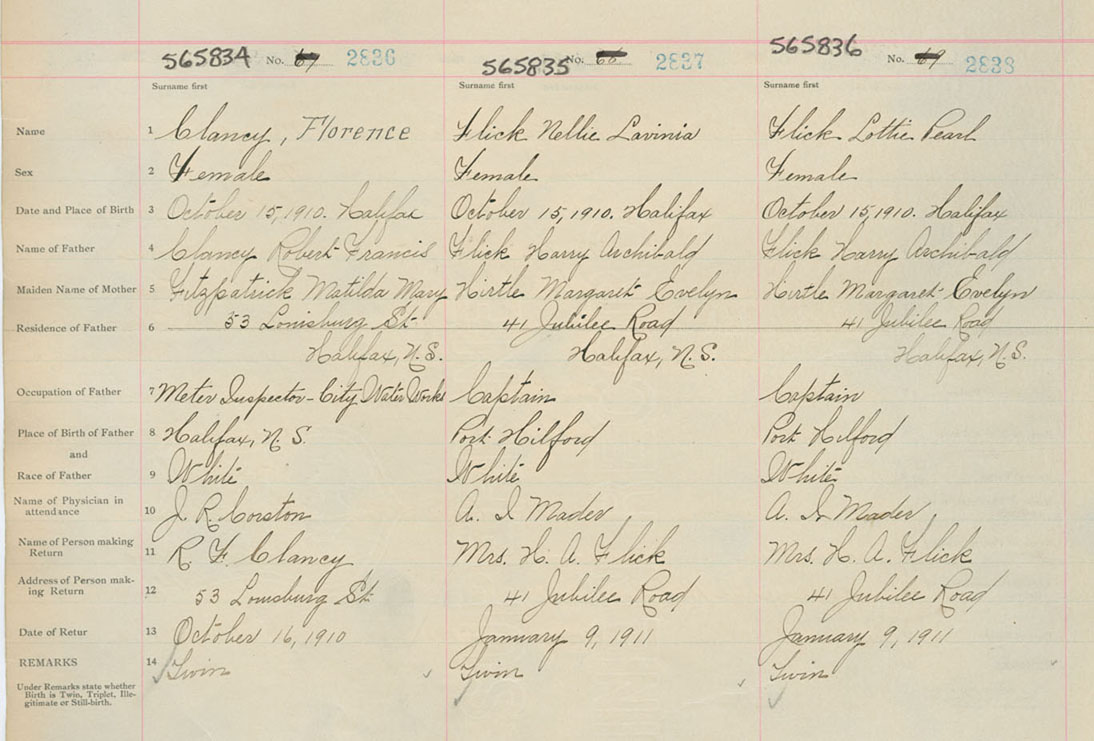 565834 No. 67 2836 565835 No. 68 2837 565836 No. 69 2838
Surname first Surname first Surname first
Name 1 Clancy, Florence Flick Nellie Lavinia Flick Lottie Pearl
Sex 2 Female Female Female
Date and Place of Birth 3 October 15, 1910. Halifax October 15, 1910. Halifax October 15, 1910. Halifax
Name of Father 4 Clancy Robert Francis Flick Harry Archibald Flick Harry Archibald
Maiden Name of Mother 5 Fitzpatrick Matilda Mary Hirtle Margaret Evelyn Hirtle Margaret Evelyn
Residence of Father 6 53 Louisburg St 41 Jubilee Road 41 Jubilee Road
Halifax, N.S. Halifax, N.S. Halifax, N.S.
Occupation of Father 7 Meter Inspector - City Water Works Captain Captain
Place of Birth of Father 8 Halifax, N.S. Port Hilford Port Hilford
and
Race of Father 9 White White White
Name of Physician in
attendance 10 J. R. Corston A. I. Mader A. I. Mader
Name of Person making
Return 11 R. F. Clancy Mrs. H. A. Flick Mrs. H. A. Flick
Address of Person mak-
ing Return 12 53 Louisburg St. 41 Jubilee Road 41 Jubilee Road
Date of Retur 13 October 16, 1910 January 9, 1911 January 9, 1911
REMARKS 14 Twin Twin Twin
Under Remarks state whether
Birth is Twin, Triplet, Ille-
gitimate or Still-birth.